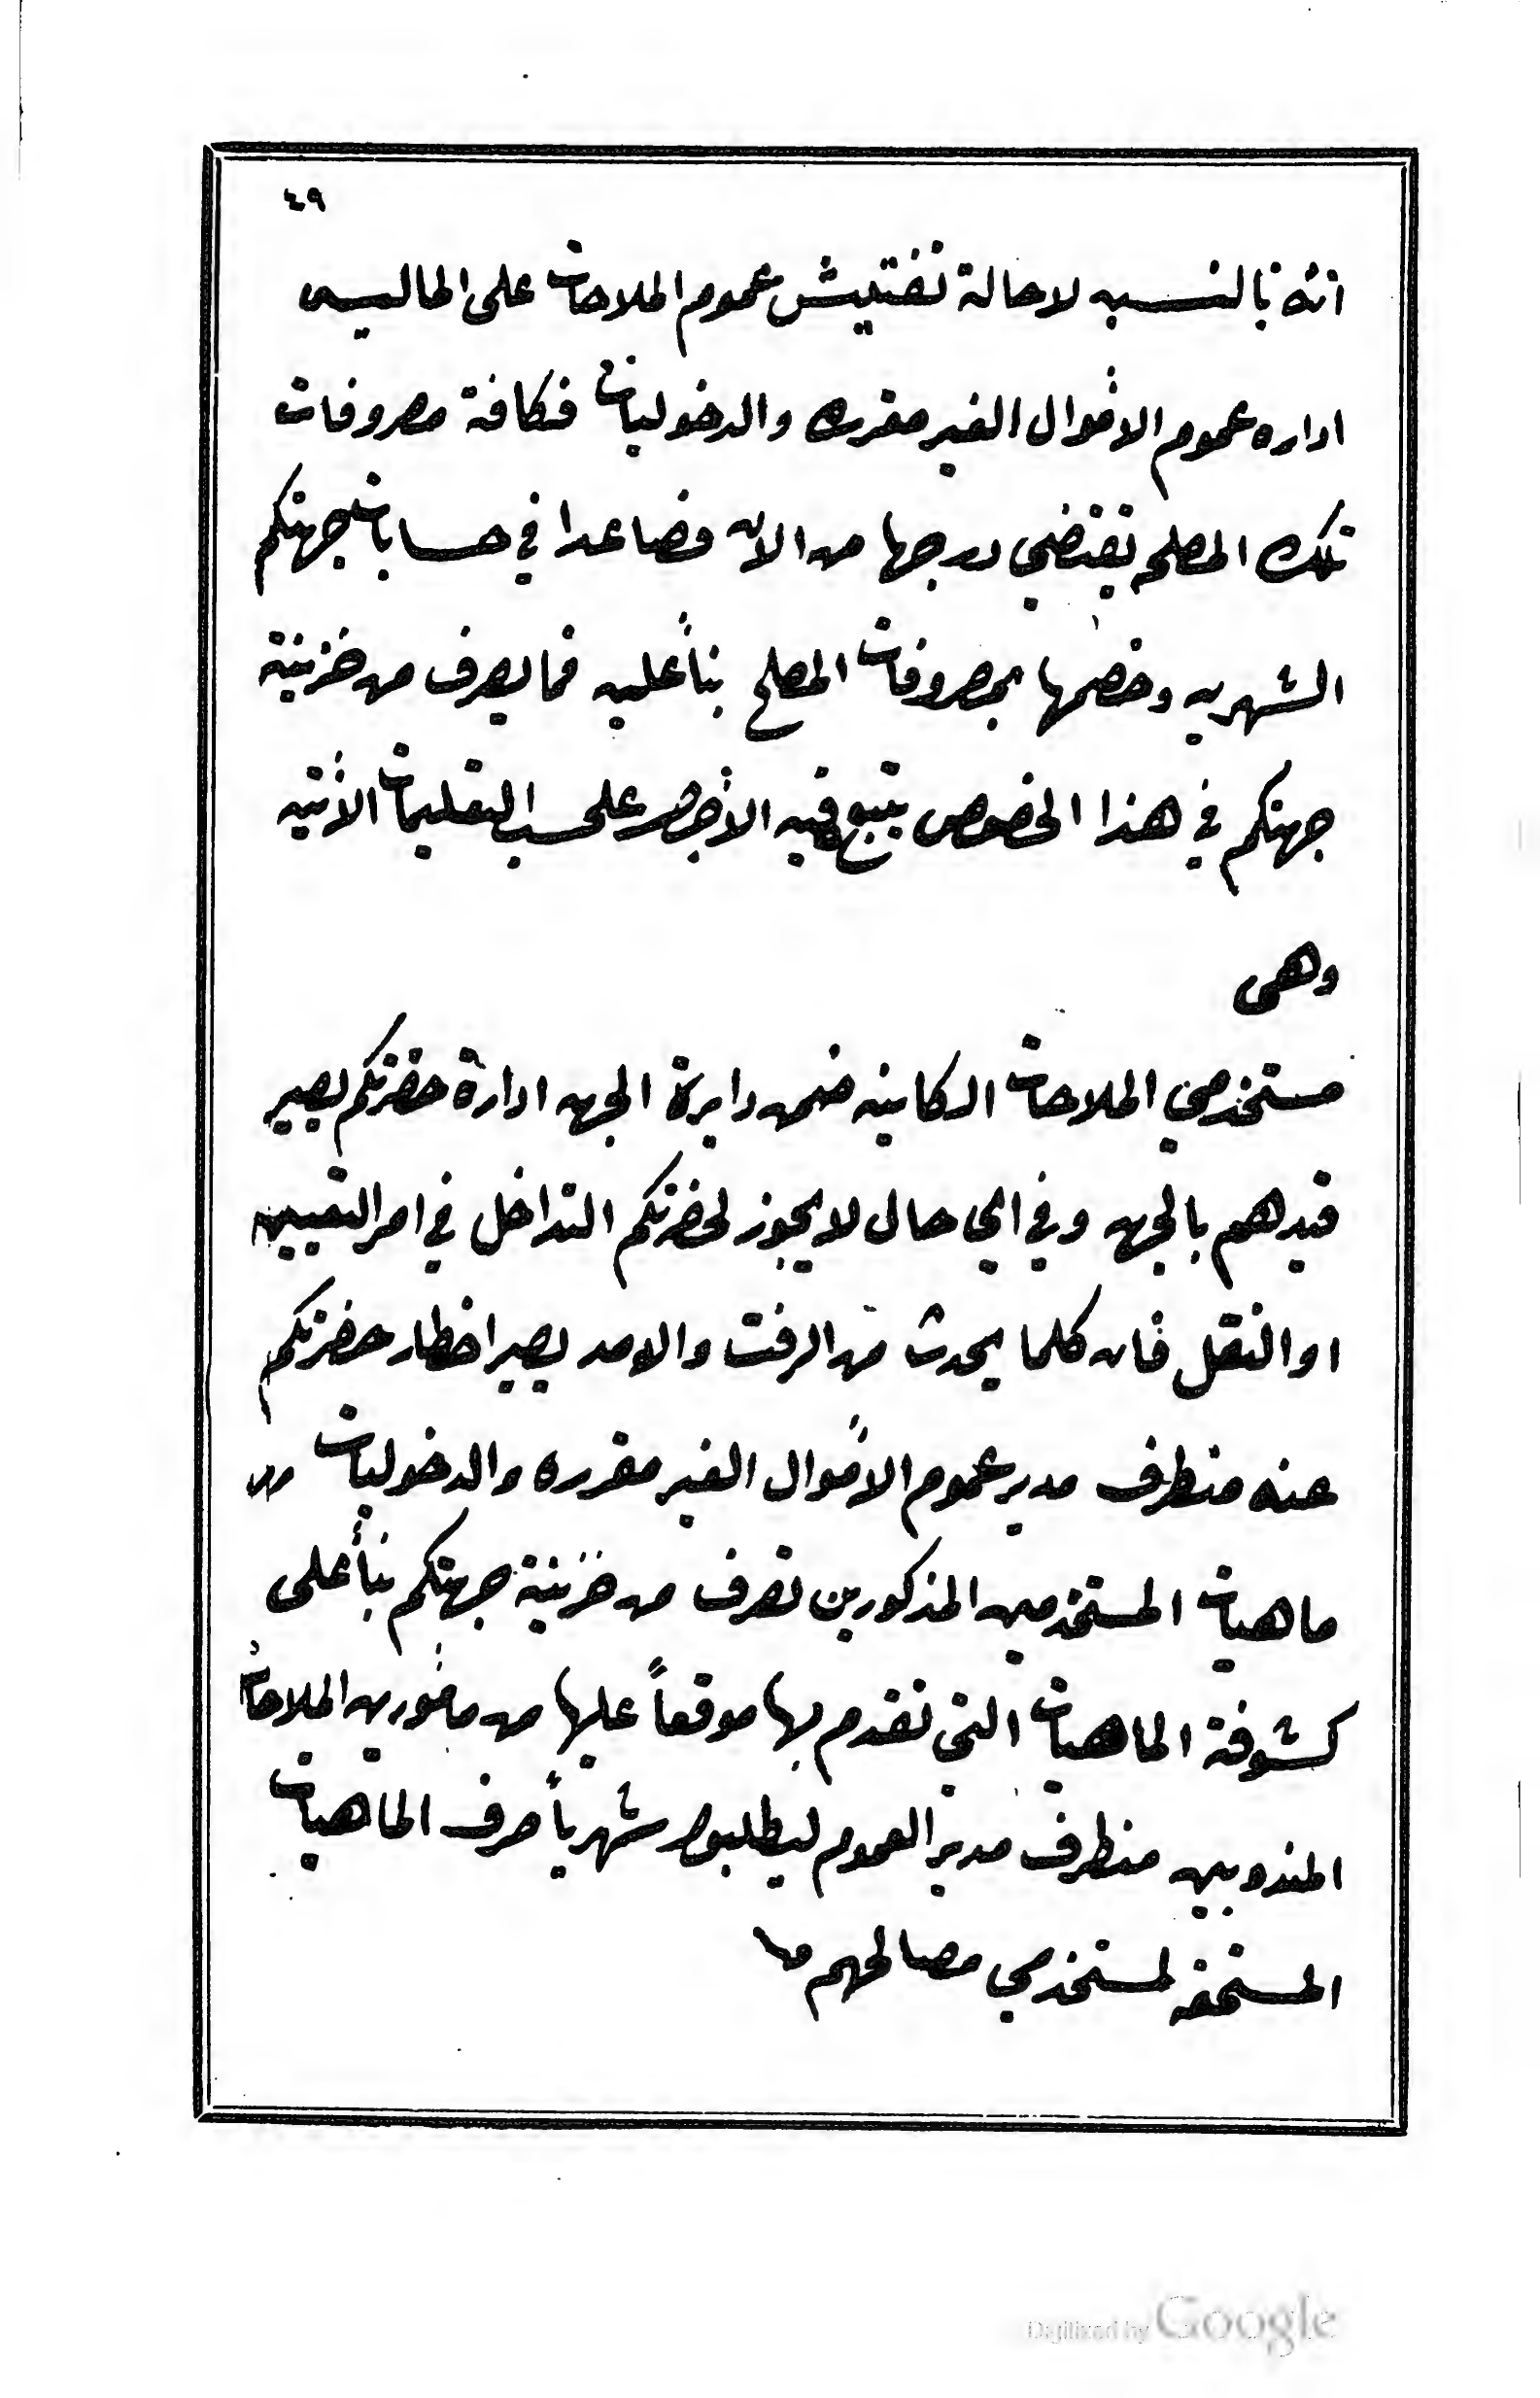 ٤٩
انه بالنسبه لاحالة تفتيش عموم الملاحات على الماليه
اداره عموم الأموال الغير مقرره والدخوليات فكافة مصروفات
تلك المصلحه يقتضي درجها من الان فصاعدا في حسابات جهتكم
الشهريه وخصمها بمصروفات المصلح بناً عليه فما يصرف من خزينة
جهتكم في هذا الخصوص يتبع فيه الأجرا على حسب التعليمات الأتيه
وهى
مستخدمي الملاحات الكاينه ضمن دايرة الجهه ادارة حضرتكم يصير
قيدهم بالجهه وفي أي حال لا يجوز لحضرتكم التداخل في امر التعيين
او النقل فان كلما يحدث من الرفت والامد يصير اخطار حضرتكم
عنه منطرف مدير عموم الأموال الغير مقرره والدخوليات
ماهيات المستخدمين المذكورين تصرف من خزينة جهتكم بنأ على
كشوفة الماهيات التي تقدم بها موقعاً عليها من مأمورين الملاحات
المندوبين منطرف مدير العموم ليطلبوا شهرياً صرف الماهيات
المستحقه لمستخدمي مصالحهم
Digitized by Google